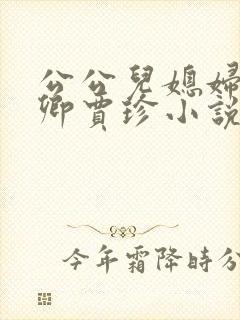 公公兒媳婦
卿賈珍小說
今年霜降時分